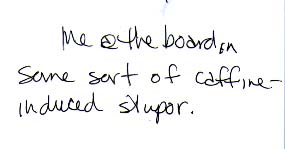 Me @ the board in
some sort of caffine-
induced stupor.